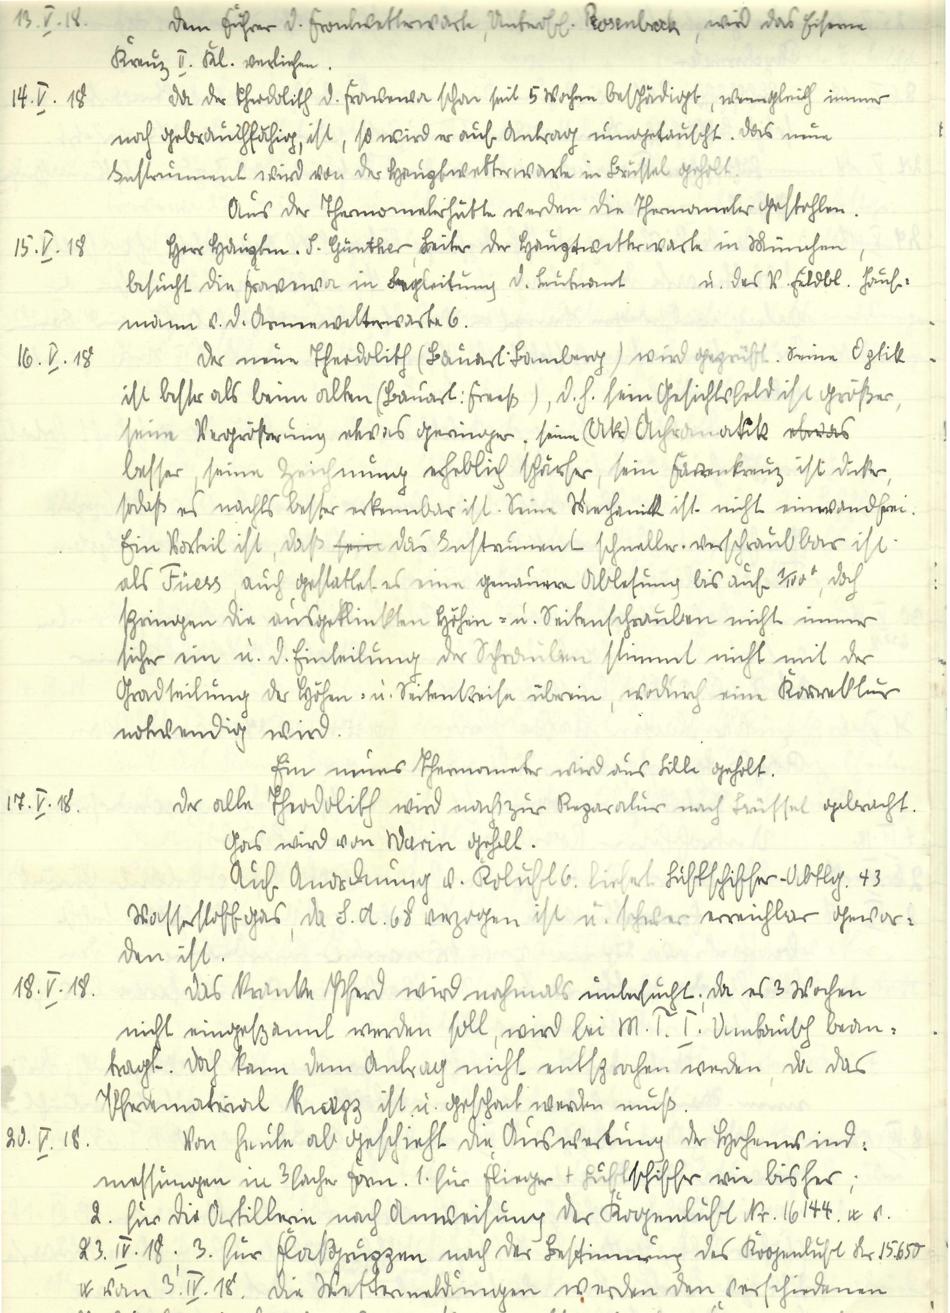 13.V.18. Dem Führer d. Frontwetterwarte, Unteroff. Rosenbrock, wird das Eiserne
Kreuz II. Kl. verliehen.
14.V.18 Da der Theodolith d. Frawewa schon seit 5 Wochen beschädigt, wenngleich immer
noch gebrauchsfähig, ist, so wird er auf Antrag umgetauscht. Das neue
Instrument wird von der Hauptwetterwarte in Brüssel geholt.
Aus der Thermometerhütte werden die Thermometer gestohlen.
15.V.18 Herr Hauptm. S. Günther, Leiter der Hauptwetterwarte in München,
besucht die Frawewa in Begleitung d. Leutnant u. des V. Feldbl. Hauf-
mann v. d. Armeewetterwarte 6.
16.V.18 Der neue Theodolith (Bauart: Bamberg) wird geprüft. Seine Optik
ist besser als beim alten (Bauart: Fuess), d.h. sein Gesichtsfeld ist größer,
seine Vergrößerung etwas geringer, seine (Ak) Achromatik etwas
besser, seine Zeichnung erheblich schärfer, sein Fadenkreuz ist dicker,
sodaß es nachts besser erkennbar ist. Seine Mechanik ist nicht einwandfrei.
Ein Vorteil ist, daß sein das Instrument schneller verschraubbar ist
als Fuess, auch gestattet es eine genauere Ablesung bis auf 1/100°, doch
springen die ausgeklinkten Höhen- u. Seitenschrauben nicht immer
sicher ein u. d. Einteilung der Schrauben stimmt nicht mit der
Gradteilung der Höhen- u. Seitenkreise überein, wodurch eine Korrektur
notwendig wird.
Ein neues Thermometer wird aus Lille geholt.
17.V.18. Der alte Theodolith wird nach zur Reparatur nach Brüssel gebracht.
Gas wird von Marin geholt.
Auf Anordnung v. Koluft 6. liefert Luftschiffer-Abtlg. 43
Wasserstoffgas, da S.d. 68 verzogen ist u. schwer erreichbar gewor-
den ist.
18.V.18. Das kranke Pferd wird nochmals untersucht; da es 3 Wochen
nicht eingespannt werden soll, wird bei M.T.I. Umtausch bean-
tragt. Doch kann dem Antrag nicht entsprochen werden, da das
Pferdematerial knapp ist u. geschont werden muß.
20.V.18. Von heute ab geschieht die Auswertung der Höhenwind-
messungen in 3facher Form. 1. für Flieger + Luftschiffer wie bisher;
2. für die Artillerie nach Anweisung der Kogenluft Nr. 16144. v.
23.IV.18; 3. für Flaßgruppen nach der Bestimmung des Kogenluft Nr 15650
von 3.IV.18. Die Wettermeldungen werden den verschiedenen